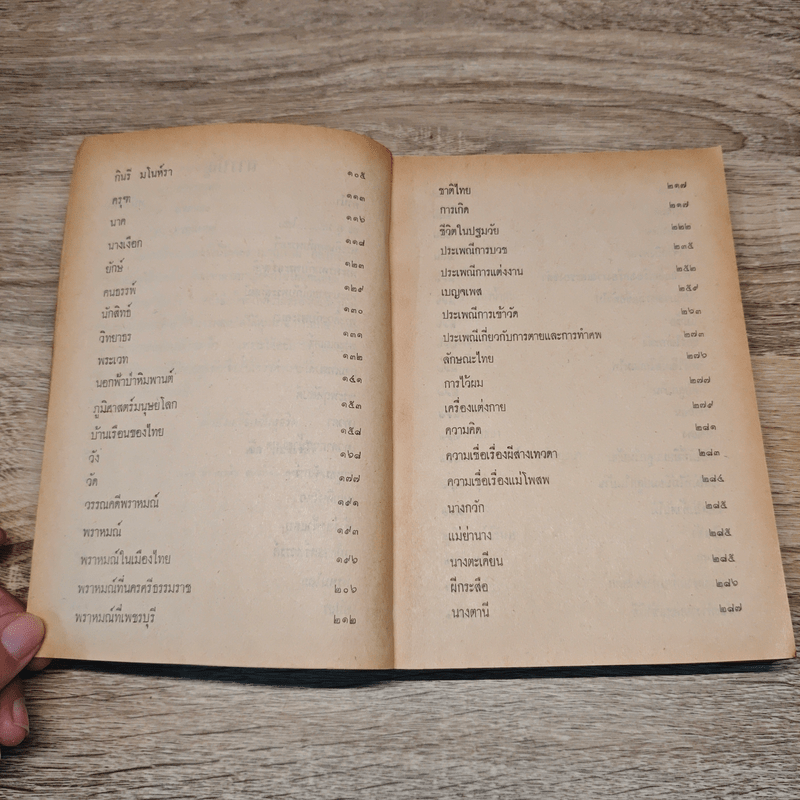 กินรี มโนห์รา ๑๐๕
ครุฑ ๑๑๓
นาค ๑๑๖
นางเงือก ๑๑๘
ยักษ์ ๑๒๓
คนธรรพ์ ๑๒๙
นักสิทธ์ ๑๓๐
วิทยาธร ๑๓๑
พระเวท ๑๓๒
นอกฟ้าป่าหิมพานต์ ๑๔๑
ภูมิศาสตร์มนุษยโลก ๑๕๓
บ้านเรือนของไทย ๑๕๘
วัง ๑๖๘
วัด ๑๗๗
วรรณคดีพราหมณ์ ๑๙๑
พราหมณ์ ๑๙๓
พราหมณ์ในเมืองไทย ๑๙๖
พราหมณ์ที่นครศรีธรรมราช ๒๐๖
พราหมณ์ที่เพชรบุรี ๒๑๒
ชาติไทย ๒๑๗
การเกิด ๒๑๗
ชีวิตในปฐมวัย ๒๒๒
ประเพณีการบวช ๒๓๕
ประเพณีการแต่งงาน ๒๕๒
เบญจเพส ๒๕๙
ประเพณีการเข้าวัด ๒๖๓
ประเพณีเกี่ยวกับการตายและการทำศพ ๒๗๓
ลักษณะไทย ๒๗๖
การไว้ผม ๒๗๗
เครื่องแต่งกาย ๒๗๙
ความคิด ๒๘๑
ความเชื่อเรื่องผีสางเทวดา ๒๘๓
ความเชื่อเรื่องแม่โพสพ ๒๘๔
นางกวัก ๒๘๕
แม่ย่านาง ๒๘๕
นางตะเคียน ๒๘๕
ผีกระสือ ๒๘๖
นางตานี ๒๘๗